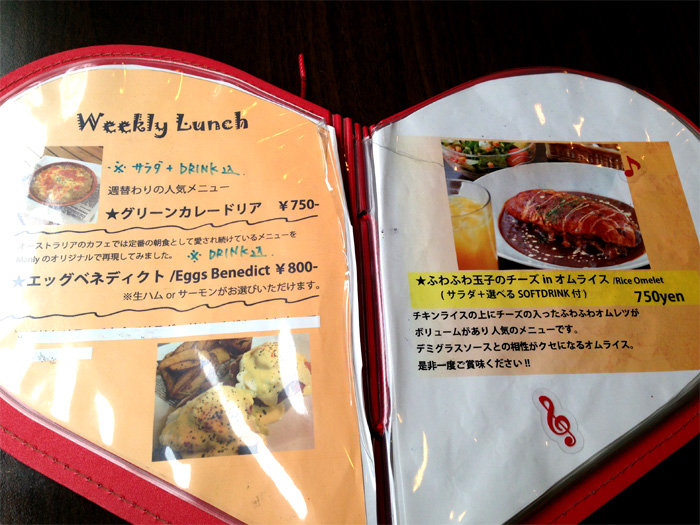 Weekly Lunch
※ サラダ + DRINK 込
週替わりの人気メニュー
★グリーンカレードリア ￥750-
オーストラリアのカフェでは定番の朝食として愛され続けているメニューを
Manly のオリジナルで再現してみました。 ※ DRINK 込
★エッグベネディクト /Eggs Benedict ￥800-
※生ハム or サーモンがお選びいただけます。
★ふわふわ玉子のチーズ in オムライス /Rice Omelet
( サラダ＋選べる SOFTDRINK 付 ) 750yen
チキンライスの上にチーズの入ったふわふわオムレツが
ボリュームがあり人気のメニューです。
デミグラスソースとの相性がクセになるオムライス。
是非一度ご賞味ください !!